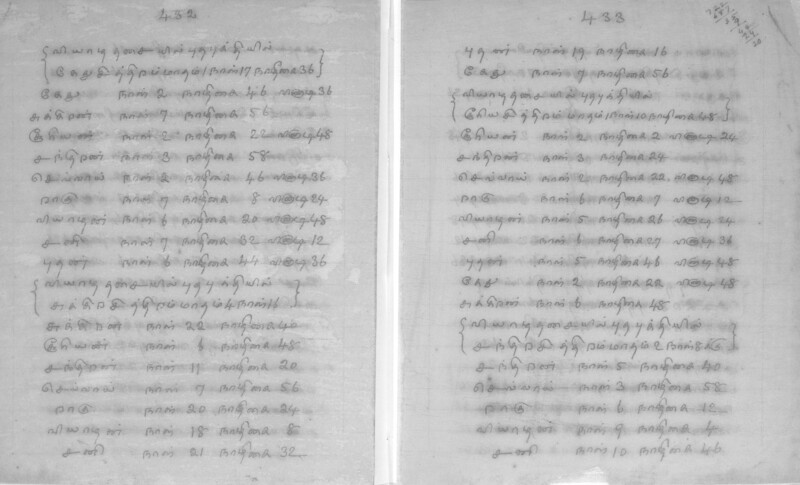 432
வியாழதசையில் புதபுத்தியில்
கேது சித்திரம் மாதம் 1 நாள் 17 நாழிகை 36
கேது நாள் 2 நாழிகை 46 விகடி 36
சுக்கிரன் நாள் 7 நாழிகை 56
சூரியன் நாள் 2 நாழிகை 22 விகடி 48
சந்திரன் நாள் 3 நாழிகை 58
செவ்வாய் நாள் 2 நாழிகை 46 விகடி 36
ராகு நாள் 7 நாழிகை 8 விகடி 24
வியாழன் நாள் 6 நாழிகை 20 விகடி 48
சனி நாள் 7 நாழிகை 32 விகடி 12
புதன் நாள் 6 நாழிகை 44 விகடி 36
வியாழதசையில் புதபுத்தியில்
சுக்கிர சித்திரம் மாதம் 4 நாள் 16
சுக்கிரன் நாள் 22 நாழிகை 40
சூரியன் நாள் 6 நாழிகை 48
சந்திரன் நாள் 11 நாழிகை 20
செவ்வாய் நாள் 7 நாழிகை 56
ராகு நாள் 20 நாழிகை 24
வியாழன் நாள் 18 நாழிகை 8
சனி நாள் 21 நாழிகை 32
433
புதன் நாள் 19 நாழிகை 16
கேது நாள் 7 நாழிகை 56
வியாழதசையில் புதபுத்தியில்
சூரிய சித்திரம் மாதம் 1 நாள் 10 நாழிகை 48
சூரியன் நாள் 2 நாழிகை 2 விகடி 24
சந்திரன் நாள் 3 நாழிகை 24
செவ்வாய் நாள் 2 நாழிகை 22 விகடி 48
ராகு நாள் 6 நாழிகை 7 விகடி 12
வியாழன் நாள் 5 நாழிகை 26 விகடி 24
சனி நாள் 6 நாழிகை 27 விகடி 36
புதன் நாள் 5 நாழிகை 46 விகடி 48
கேது நாள் 2 நாழிகை 22 விகடி 48
சுக்கிரன் நாள் 6 நாழிகை 48
வியாழதசையில் புதபுத்தியில்
சந்திர சித்திரம் மாதம் 2 நாள் 8
சந்திரன் நாள் 5 நாழிகை 40
செவ்வாய் நாள் 3 நாழிகை 58
ராகு நாள் 6 நாழிகை 12
வியாழன் நாள் 9 நாழிகை 4
சனி நாள் 10 நாழிகை 46